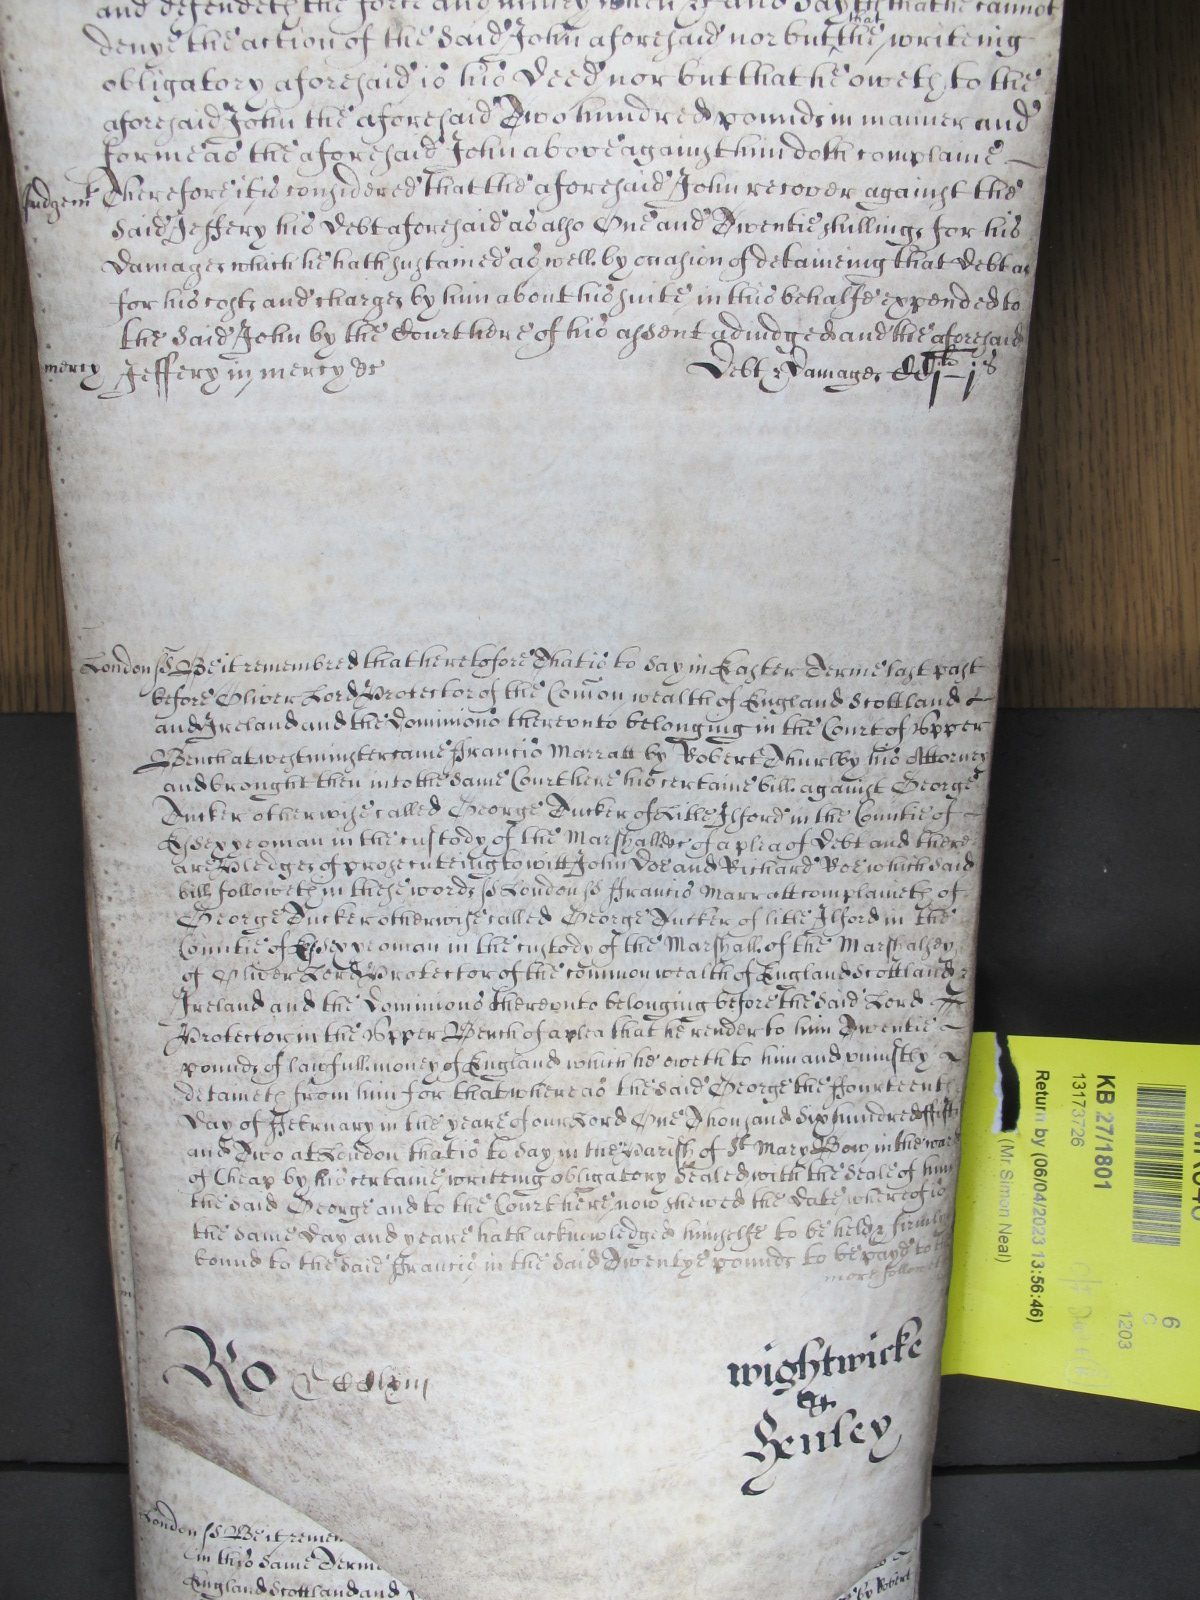 and defendeth the force and iniury when &c and Sayth that he cannot
denye the action of the Said John aforesaid nor but that the writeing
obligatory aforesaid is his Deed nor but that he oweth to the
aforesaid John the aforesaid Two hundred pounds in manner and
forme as the aforesaid John above against him doth complaine
Judgemt Therefore it is considered that the aforesaid John recover against the
Said Jeffery his Debt aforesaid as also One and Twentie shillings for his
Damages which he hath sustained as well by occasion of detaineing that Debt as
for his costs and charges by him about his suite in this behalfe expended to
the Said John by the Court here of his assent adiudged and the aforesaid
mercy Jeffery in mercy &c Debt & Damages
London ss Be it remembred that heretofore That is to Say in Easter Terme last past
before Oliver Lord Protector of the Comon wealth of England Scottland
and Ireland and the Dominions therevnto belonging in the Court of Vpper
Bench at westminster came Francis Marratt by Robert Thurlby his Attorney
and brought then into the Same Court here his certaine bill against George
Tucker otherwise called George Tucker of Little Ilford in the Countie of
Essex yeoman in the custody of the Marshall &c of a plea of Debt and there
are Pledges of prosecuteing to witt John Doe and Richard Roe which Said
bill followeth in these words ss London ss Francis Marratt complaineth of
George Tucker otherwise called George Tucker of litle Ilford in the
Countie of Essex yeoman in the custody of the Marshall of the Marshalsey
of Oliver Lord Protector of the common wealth of England Scottland &
Ireland and the Dominions therevnto belonging before the Said Lord
Protector in the Vpper Bench of a plea that he render to him Twentie
pounds of lawfull money of England which he oweth to him and vniustly
detaineth from him for that whereas the Said George the Fourteenth
Day of February in the yeare of our Lord One Thousand Six hundred fifty
and Two at London that is to Say in the Parish of St Mary Bow in the ward
of Cheap by his certaine writeing obligatory Sealed with the Seale of him
the Said George and to the Court here now shewed the Date whereof is
the Same Day and yeare hath acknowledged himselfe to be held & firmly
bound to the Said Francis in the Said Twentye pounds to be payd to
more followeth
Ro
wightwicke
&
Henley
London ss Be it remem
in this Same Terme
England Scottland and
by Robert
KB 27/1801
13173726
Return by (06/04/2023 13:56:46)
(Mr Simon Neal)
6
C
1203